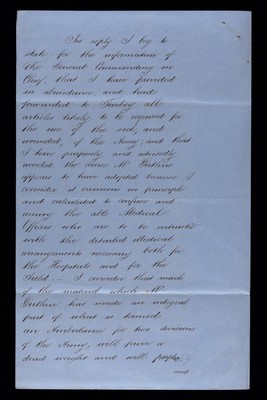 In reply I beg to
state for the information of
The General Commanding in
Chief, that I have provided
in abundance, and had
forwarded to Turkey all
articles likely to be required for
the use of the sick, and
wounded, of the Army; and that
I have purposely and advisedly
avoided the course Mr Guthrie
appears to have adopted because I
consider it erroneous in principle
and calculated to confuse and
annoy the able Medical
Officers who are to be entrusted
with the detailed Medical
arrangements necessary both for
the Hospitals and for the
Field – I consider that much
of the material which Mr
Guthrie has made an integral
part of what is termed
an Ambulance for two divisions
of the Army, will prove a
dead weight and will
and